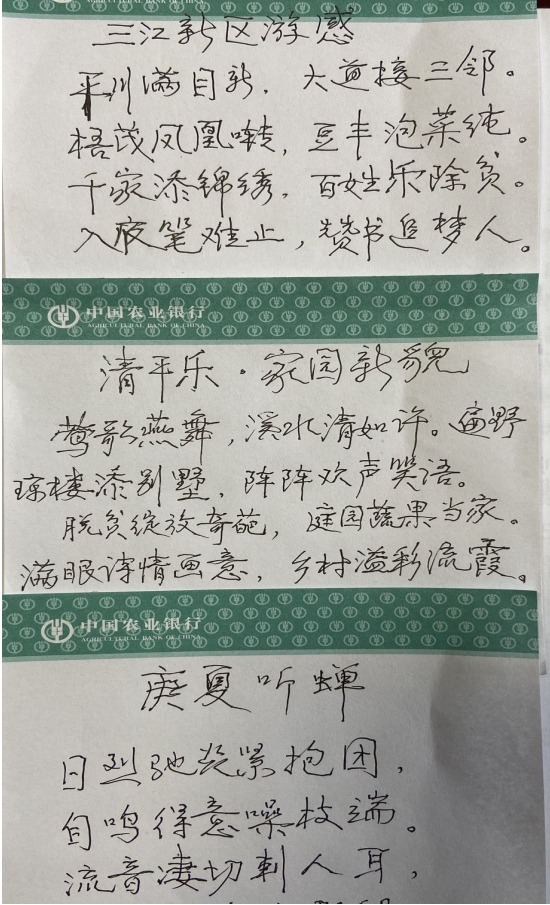 三江新区游感
平川满目新，大道接三邻。
梧茂凤凰啭，豆丰泡菜纯。
千家添锦绣，百姓乐除贫。
入夜笔难止，赞书追梦人。
中国农业银行
AGRICULTURAL BANK OF CHINA
清平乐·家园新貌
莺歌燕舞，溪水清如许。遍野
琼楼添别墅，阵阵欢声笑语。
脱贫绽放奇葩，庭园蔬果当家。
满眼诗情画意，乡村溢彩流霞。
中国农业银行
AGRICULTURAL BANK OF CHINA
庚夏听蝉
日烈驰炎紧抱团，
自鸣得意噪枝端。
流音凄切刺人耳，